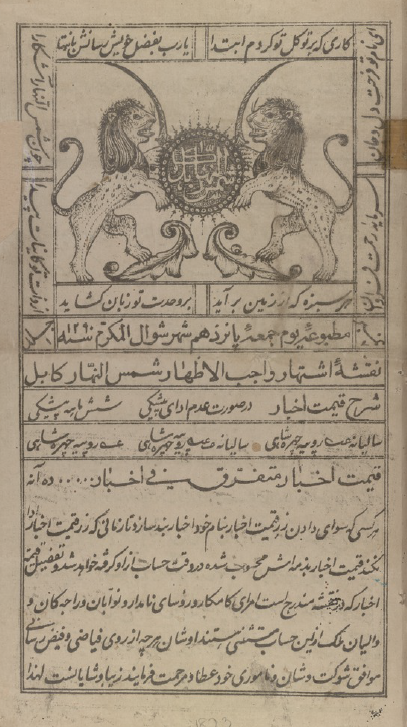 کاری که بر تو کل تو کردم ابتدا
یارب بفضل خویش رسانش بانتها
ای نام تو فرحت دل و جان
سرمایه رحمت فراوان
چون شمس النهار آشکارا
از ذات تو کاینات پیدا
شمس النهار
هر سبزه که از زمین برآید
بر وحدت تو زبان کشاید
مطبوعه یوم جمعه پانزدهم شهر شوال المکرم سنه ۱۲۹۰
نقشهٔ اشتهار واجب الاظهار شمس النهار کابل
شرح قیمت اخبار در صورت عدم ادای پیشکی شش ماهه پیشکی
سالیانه روپیه چهره شاهی سالیانه روپیه چهره شاهی روپیه چهره شاهی
قیمت اخبار متفرق فی اخبار ده آنه
هر کسی که سوای دادن زر قیمت اخبار بنام خود اخبار بند سازد تا زمانی که زر قیمت اخبار ادا
نکند قیمت اخبار بذمه اش محسوب شده در وقت حساب از او گرفته خواهد شد و تفصیل قیمت
اخبار که در نقشه مندرج است امرای کامکار و روسای نامدار و نوابان و راجه کان و
والیان ملک ازین حساب مستثنی هستند اوشان هر چه از روی فیاضی و فیض رسانی
موافق شوکت و شان و ناموری خود عطا و مرحمت فرمایند زیبا و شایانست لهذا